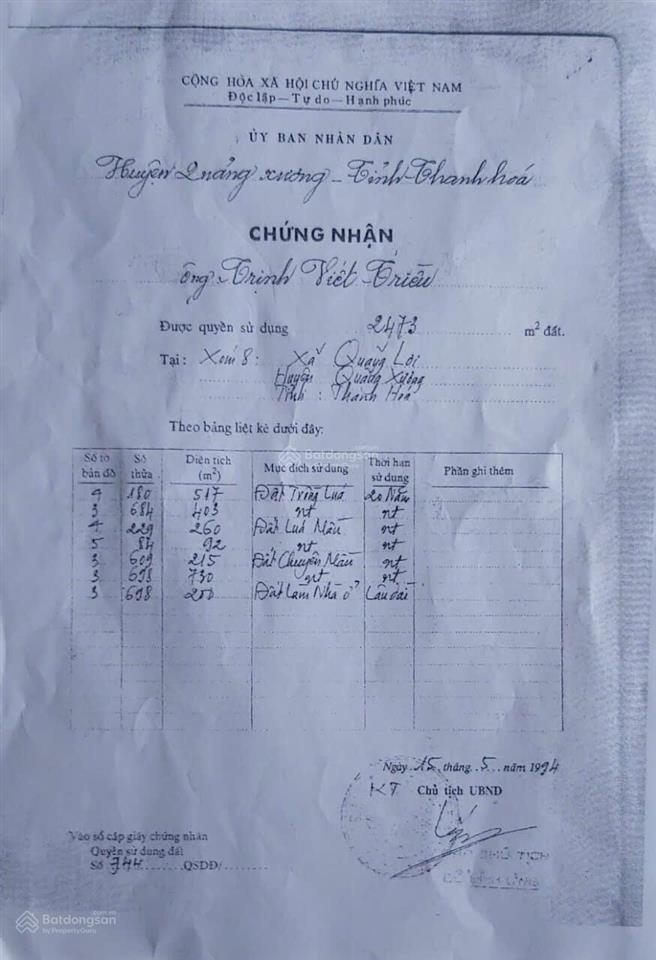 CỘNG HÒA XÃ HỘI CHỦ NGHĨA VIỆT NAM
Độc lập — Tự do — Hạnh phúc
ỦY BAN NHÂN DÂN
Huyện Quảng xương - Tỉnh Thanh hoá
CHỨNG NHẬN
ông Trịnh Viết Triều
Được quyền sử dụng 2473 m² đất.
Tại: Xóm 8: Xã Quảng Lợi
Huyện Quảng Xương
Tỉnh: Thanh Hoá
Theo bảng liệt kê dưới đây:
Số tờ bản đồ Số thửa Diện tích (m²) Mục đích sử dụng Thời hạn sử dụng Phần ghi thêm
4 180 517 Đất Trồng Luá 20 Năm
3 684 403 nt nt
4 229 260 Đất Luá Mầu nt
5 84 92 nt nt
3 609 215 Đất Chuyên Mầu nt
3 698 730 nt nt
3 698 200 Đất Làm Nhà ở Lâu dài
Ngày 15 tháng 5 năm 1994
KT Chủ tịch UBND
CHỦ TỊCH
Vào sổ cấp giấy chứng nhận
Quyền sử dụng đất
Số 744 QSDĐ/
Batdongsan
Batdongsan
.com.vn
by PropertyGuru